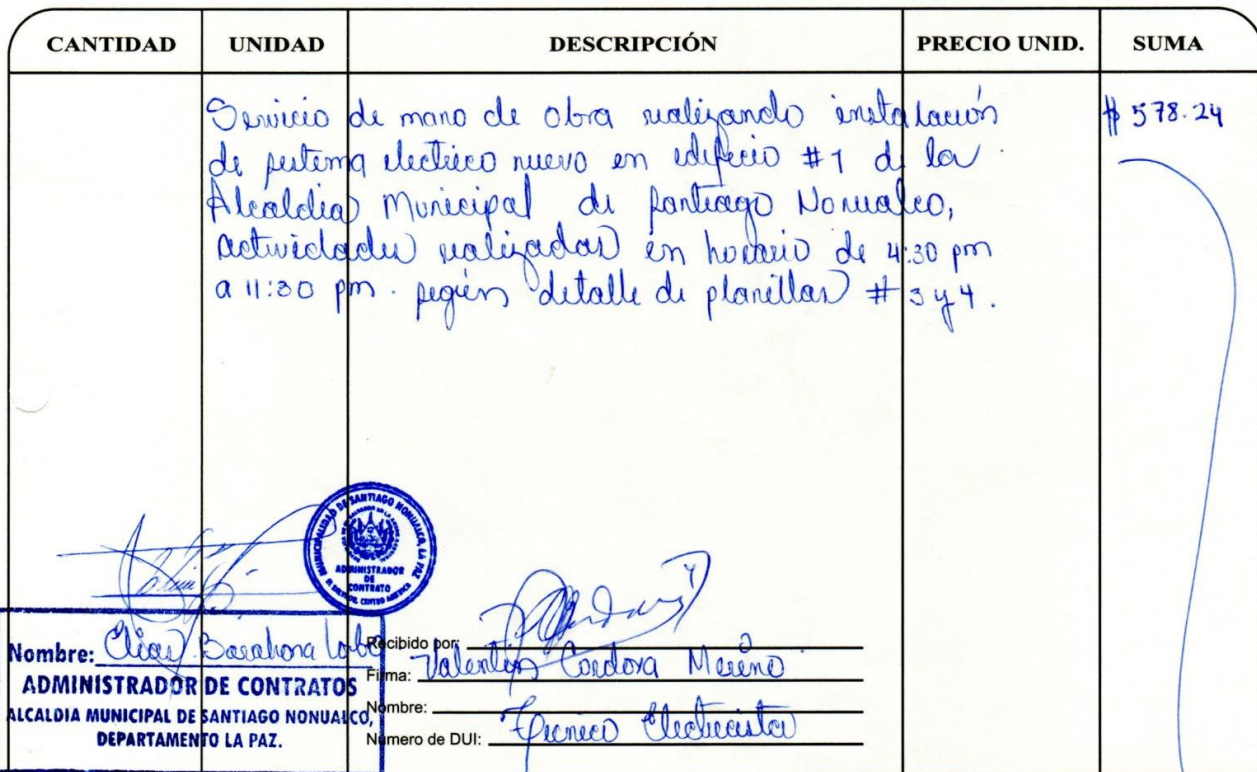 CANTIDAD UNIDAD DESCRIPCIÓN PRECIO UNID. SUMA
Servicio de mano de obra realizando instalación $ 578.24
de sistema electrico nuevo en edificio #1 de la
Alcaldia Municipal de Santiago Nonualco,
actividades realizadas en horario de 4:30 pm
a 11:30 pm. según detalle de planillas # 3 y 4.
MUNICIPALIDAD DE SANTIAGO NONUALCO, LA PAZ
ADMINISTRADOR
DE
CONTRATO
EL SALVADOR, CENTRO AMERICA
Nombre: Elias Barahona
ADMINISTRADOR DE CONTRATOS
ALCALDIA MUNICIPAL DE SANTIAGO NONUALCO,
DEPARTAMENTO LA PAZ.
Recibido por:
Firma: Valentin Cordova Merino
Nombre:
Número de DUI: Tecnico Electricista